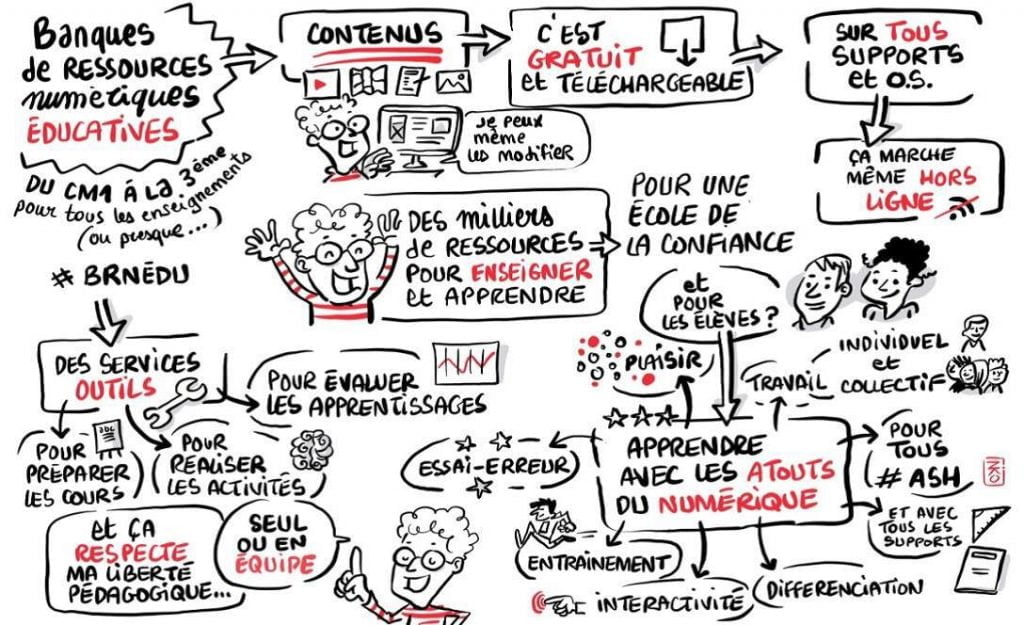 Banques
de RESSOURCES
numériques
ÉDUCATIVES
DU CM1 À LA 3ème
pour tous les enseignements
(ou presque...)
# BRNÉDU
CONTENUS
Je peux
même
les modifier
C'EST
GRATUIT
et TÉLÉCHARGEABLE
SUR TOUS
SUPPORTS
et O.S.
ÇA MARCHE
MÊME HORS
LIGNE
DES milliers
de RESSOURCES
POUR ENSEIGNER
et APPRENDRE
POUR UNE
ÉCOLE DE
LA CONFIANCE
et
POUR
LES ÉLÈVES ?
DES SERVICES
OUTILS
POUR ÉVALUER
LES APPRENTISSAGES
abc
POUR
PRÉPARER
LES COURS
POUR
RÉALISER
LES ACTIVITÉS
et ÇA
RESPECTE
MA LIBERTÉ
PÉDAGOGIQUE...
SEUL
OU EN
ÉQUIPE
APPRENDRE
AVEC LES ATOUTS
DU NUMÉRIQUE
PLAISIR
TRAVAIL
INDIVIDUEL
et
COLLECTIF
ESSAI-ERREUR
POUR
TOUS
# ASH
ET AVEC
TOUS LES
SUPPORTS
ENTRAINEMENT
INTERACTIVITÉ
DIFFERENCIATION